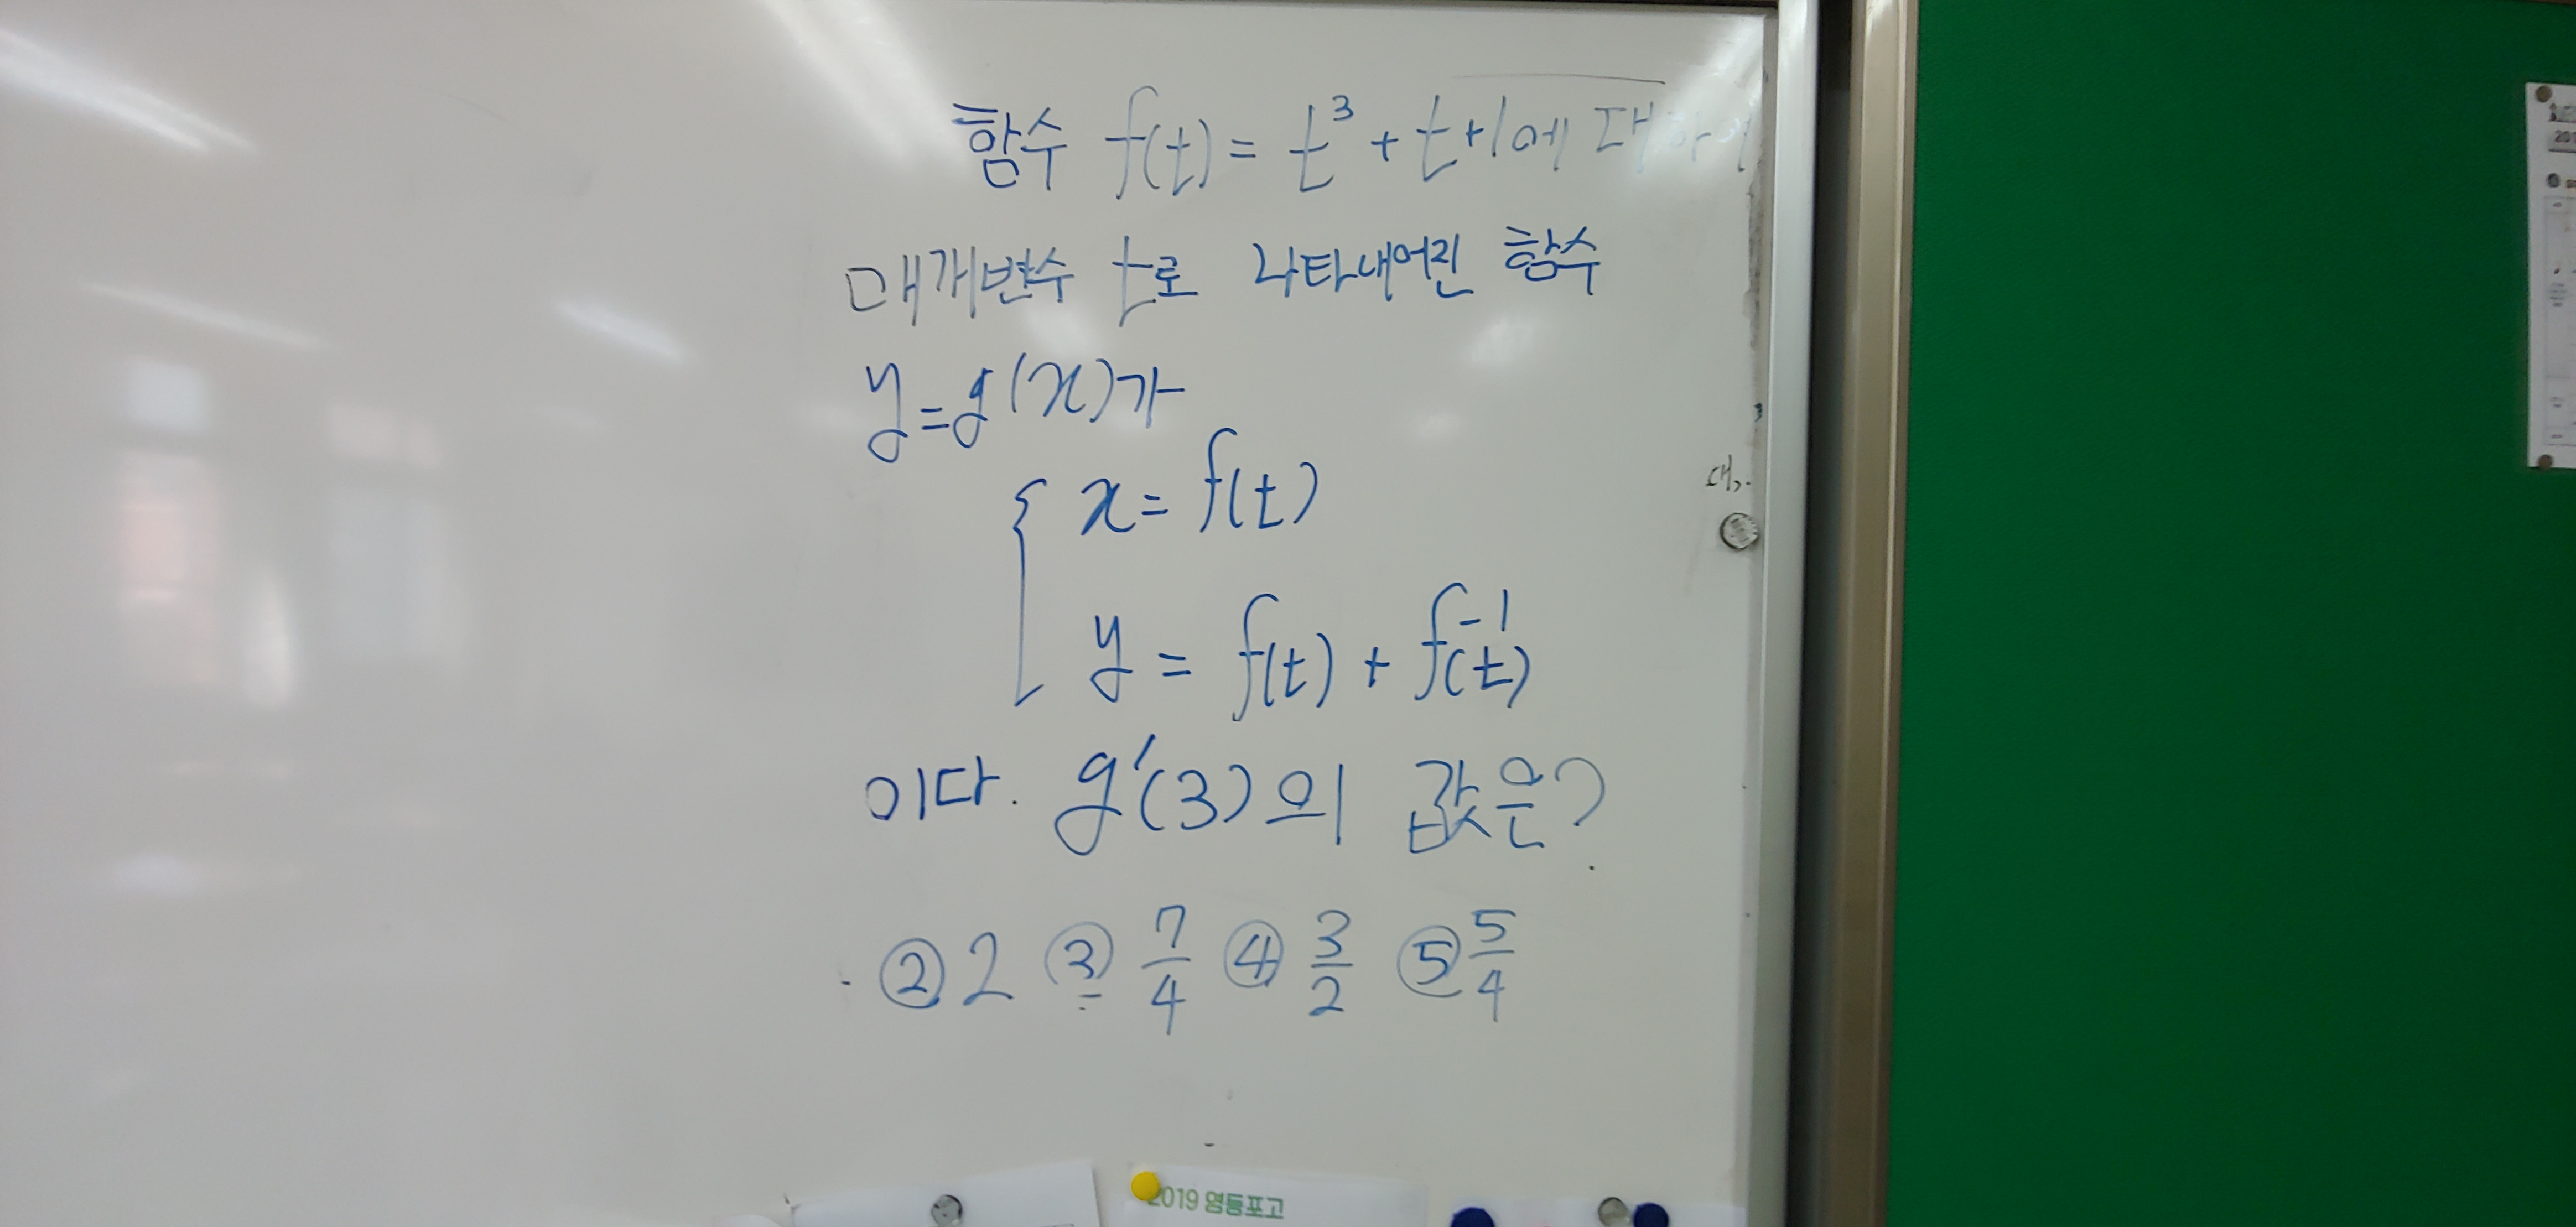 함수 f(t) = t³ + t + 1에 대하여
매개변수 t로 나타내어진 함수
y = g(x)가
x = f(t)
y = f(t) + f⁻¹(t)
이다. g'(3)의 값은?
② 2 ③ 7/4 ④ 3/2 ⑤ 5/4
2019 영등포고